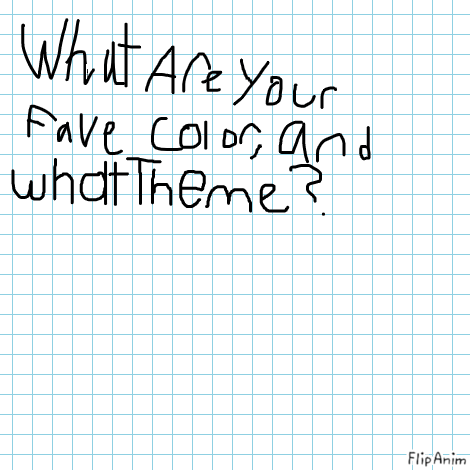 What Are Your
Fave Color, and
whatTheme?
FlipAnim